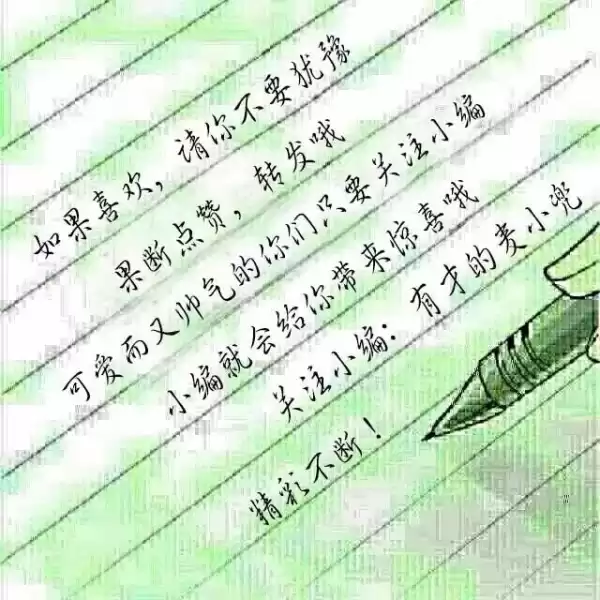 如果喜欢，请你不要犹豫
果断点赞，转发哦
可爱而又帅气的你们只要关注小编
小编就会给你带来惊喜哦
关注小编：有才的麦小兜
精彩不断！